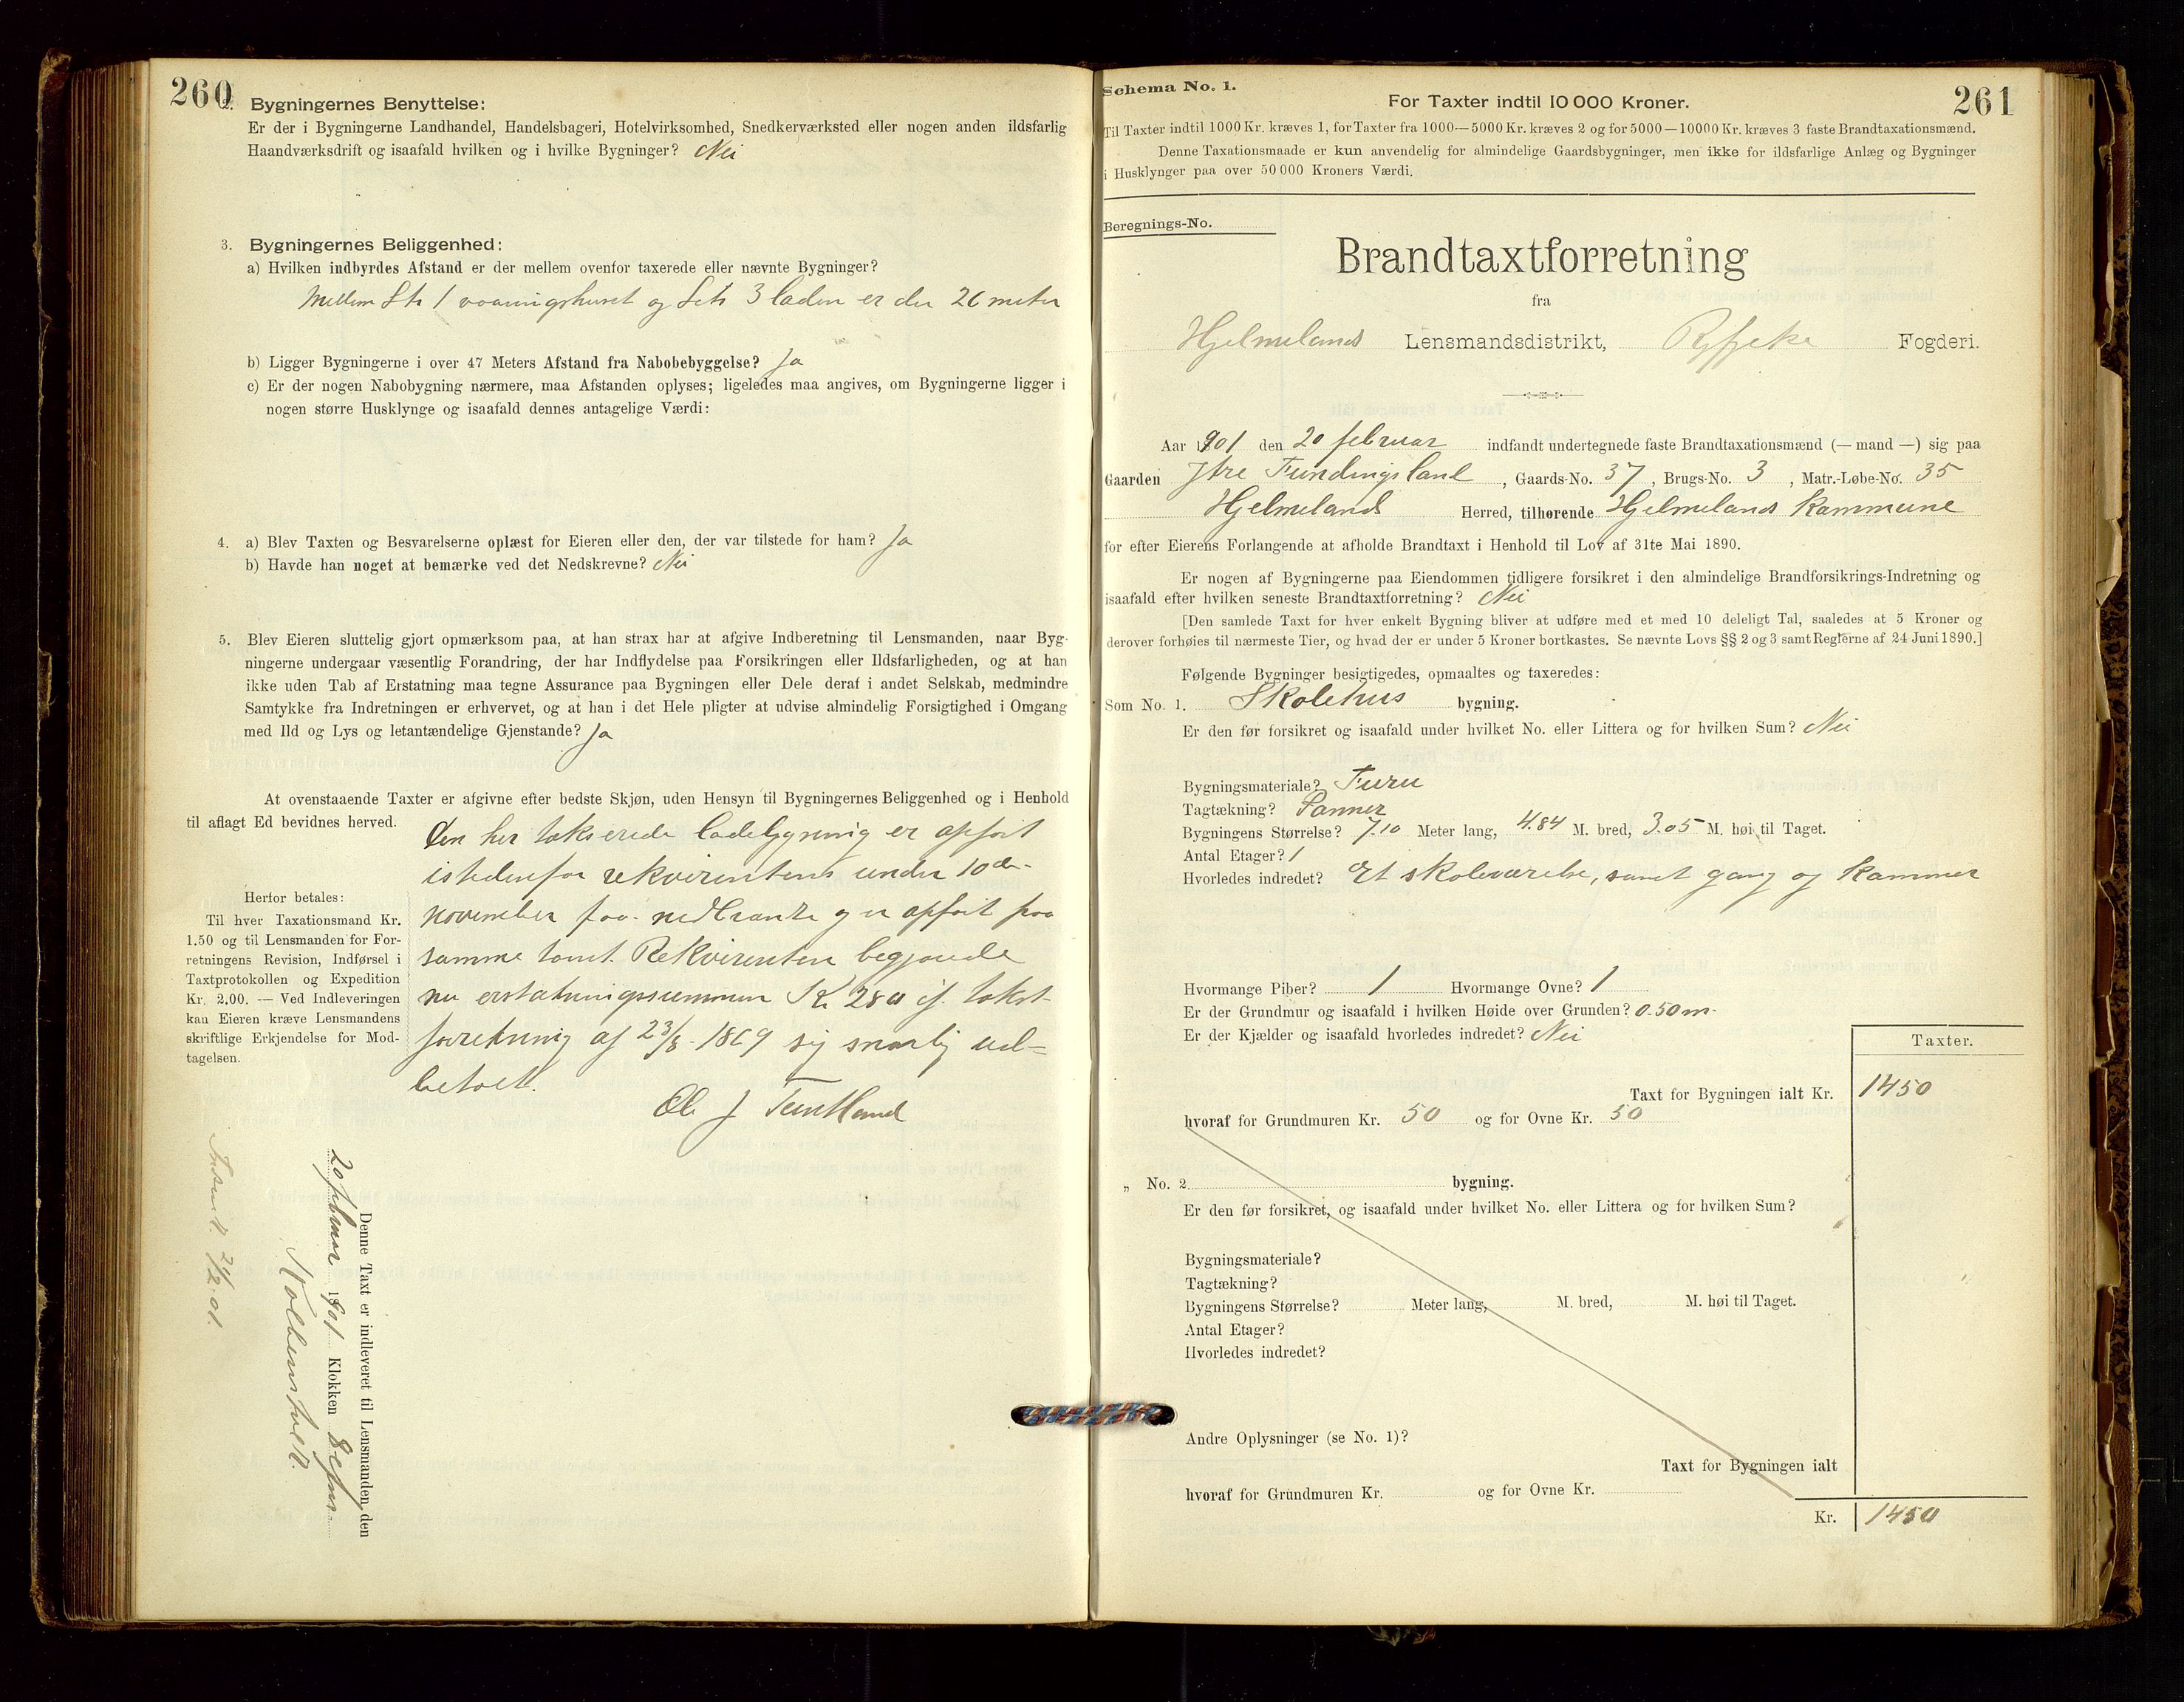 260
2. Bygningernes Benyttelse:
Er der i Bygningerne Landhandel, Handelsbageri, Hotelvirksomhed, Snedkerværksted eller nogen anden ildsfarlig
Haandværksdrift og isaafald hvilken og i hvilke Bygninger? Nei
3. Bygningernes Beliggenhed:
a) Hvilken indbyrdes Afstand er der mellem ovenfor taxerede eller nævnte Bygninger?
Mellem Litr 1 vaaningshuset og Litr 3 laden er der 26 meter
b) Ligger Bygningerne i over 47 Meters Afstand fra Nabobebyggelse? Ja
c) Er der nogen Nabobygning nærmere, maa Afstanden oplyses; ligeledes maa angives, om Bygningerne ligger i
nogen større Husklynge og isaafald dennes antagelige Værdi:
4. a) Blev Taxten og Besvarelserne oplæst for Eieren eller den, der var tilstede for ham? Ja
b) Havde han noget at bemærke ved det Nedskrevne? Nei
5. Blev Eieren sluttelig gjort opmærksom paa, at han strax har at afgive Indberetning til Lensmanden, naar Byg-
ningerne undergaar væsentlig Forandring, der har Indflydelse paa Forsikringen eller Ildsfarligheden, og at han
ikke uden Tab af Erstatning maa tegne Assurance paa Bygningen eller Dele deraf i andet Selskab, medmindre
Samtykke fra Indretningen er erhvervet, og at han i det Hele pligter at udvise almindelig Forsigtighed i Omgang
med Ild og Lys og letantændelige Gjenstande? Ja
At ovenstaaende Taxter er afgivne efter bedste Skjøn, uden Hensyn til Bygningernes Beliggenhed og i Henhold
til aflagt Ed bevidnes herved.
den her takserede ladebygning er opført
istedenfor rekvirentens under 10de
november f.a. nedbrante og er opført paa
samme tomt. Rekvirenten begjærede
nu erstatningssummen Kr 280 cf. takst-
foretning af 23/8 - 1869 sig snarlig ud-
betalt.
Ole J Tuntland
Herfor betales:
Til hver Taxationsmand Kr.
1.50 og til Lensmanden for For-
retningens Revision, Indførsel i
Taxtprotokollen og Expedition
Kr. 2.00. — Ved Indleveringen
kan Eieren kræve Lensmandens
skriftlige Erkjendelse for Mod-
tagelsen.
Denne Taxt er indleveret til Lensmanden, den
20 februar 1901 Klokken 8 efm
21/2 01.
261
Schema No. 1.
For Taxter indtil 10 000 Kroner.
Til Taxter indtil 1000 Kr. kræves 1, for Taxter fra 1000—5000 Kr. kræves 2 og for 5000—10000 Kr. kræves 3 faste Brandtaxationsmænd.
Denne Taxationsmaade er kun anvendelig for almindelige Gaardsbygninger, men ikke for ildsfarlige Anlæg og Bygninger
i Husklynger paa over 50 000 Kroners Værdi.
Beregnings-No.
Brandtaxtforretning
fra
Hjelmelands Lensmandsdistrikt, Ryfylke Fogderi.
Aar 1901 den 20 februar indfandt undertegnede faste Brandtaxationsmænd (— mand —) sig paa
Gaarden Ytre Fundingsland, Gaards-No. 37, Brugs-No. 3, Matr.-Løbe-No. 35
Hjelmelands Herred, tilhørende Hjelmelands Kommune
for efter Eierens Forlangende at afholde Brandtaxt i Henhold til Lov af 31te Mai 1890.
Er nogen af Bygningerne paa Eiendommen tidligere forsikret i den almindelige Brandforsikrings-Indretning og
isaafald efter hvilken seneste Brandtaxtforretning? Nei
[Den samlede Taxt for hver enkelt Bygning bliver at udføre med et med 10 deleligt Tal, saaledes at 5 Kroner og
derover forhøies til nærmeste Tier, og hvad der er under 5 Kroner bortkastes. Se nævnte Lovs §§ 2 og 3 samt Reglerne af 24 Juni 1890.]
Følgende Bygninger besigtigedes, opmaaltes og taxeredes:
Som No. 1. Skolehus bygning.
Er den før forsikret og isaafald under hvilket No. eller Littera og for hvilken Sum? Nei
Bygningsmateriale? Furu
Tagtækning? Panner
Bygningens Størrelse? 7.10 Meter lang, 4.84 M. bred, 3.05 M. høi til Taget.
Antal Etager? 1
Hvorledes indredet? Et skoleværelse, samt gang og kammer
Hvormange Piber? 1 Hvormange Ovne? 1
Er der Grundmur og isaafald i hvilken Høide over Grunden? 0.50 m.
Er der Kjælder og isaafald hvorledes indredet? Nei
Taxter.
Taxt for Bygningen ialt Kr. 1450
hvoraf for Grundmuren Kr. 50 og for Ovne Kr. 50
„ No. 2 bygning.
Er den før forsikret, og isaafald under hvilket No. eller Littera og for hvilken Sum?
Bygningsmateriale?
Tagtækning?
Bygningens Størrelse? Meter lang, M. bred, M. høi til Taget.
Antal Etager?
Hvorledes indredet?
Andre Oplysninger (se No. 1)?
Taxt for Bygningen ialt
hvoraf for Grundmuren Kr. og for Ovne Kr.
Kr. 1450